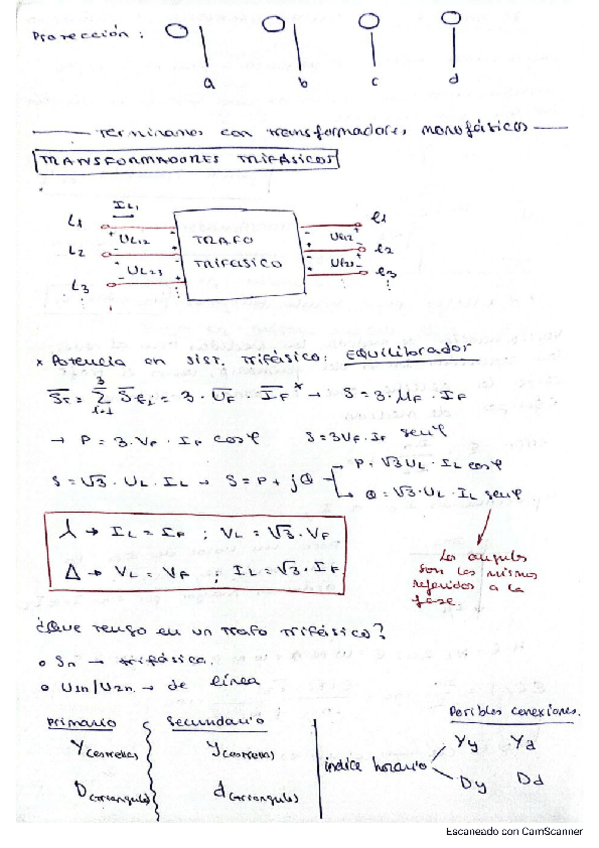 Protección :
a b c d
Terminamos con transformadores monofásicos
TRANSFORMADORES TRIFÁSICOS
IL1
L1 + UL12 - TRAFO + Ul12 - l1
L2 + UL23 - TRIFASICO + Ul23 - l2
L3 l3
* Potencia en sist. Trifásico: EQUILIBRADOR
S̅T = Σ³ᵢ₌₁ S̅fi = 3 · U̅F · I̅F* → S = 3 · UF · IF
→ P = 3 · VF · IF cos φ S = 3VF · IF sen φ
S = √3 · UL · IL → S = P + jQ P = √3 UL · IL cos φ
Q = √3 · UL · IL sen φ
⅄ → IL = IF ; VL = √3 · VF
Δ → VL = VF ; IL = √3 · IF
Los angulos
son los mismos
referidos a la
fase.
¿Que tengo en un trafo trifásico?
o Sn → trifásica.
o U1n/U2n → de línea
Primario Secundario Posibles conexiones.
Y(estrella) y(estrella) índice horario Yy Yd
D(triangulo) d(triangulo) Dy Dd
Escaneado con CamScanner